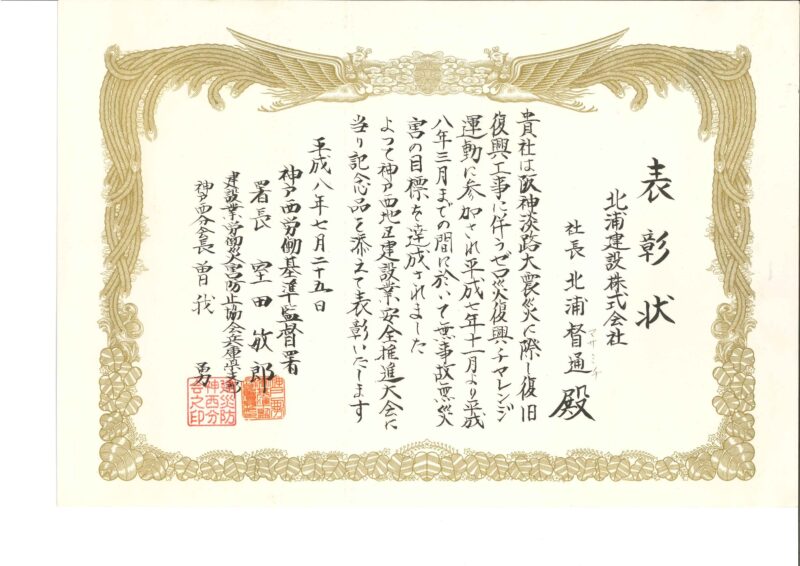 表彰状
北浦建設株式会社
社長 北浦督通殿
マサミチ
貴社は阪神淡路大震災に際し復旧
復興工事に伴うゼロ災復興・チャレンジ
運動に参加され平成七年十一月より平成
八年三月までの間に於いて無事故無災
害の目標を達成されました
よって神戸西地区建設業安全推進大会に
当り記念品を添えて表彰いたします
平成八年七月二十五日
神戸西労働基準監督署
署長 室田敏郎
建設業労働災害防止協会兵庫県支部
神戸西分会長 曽我 勇